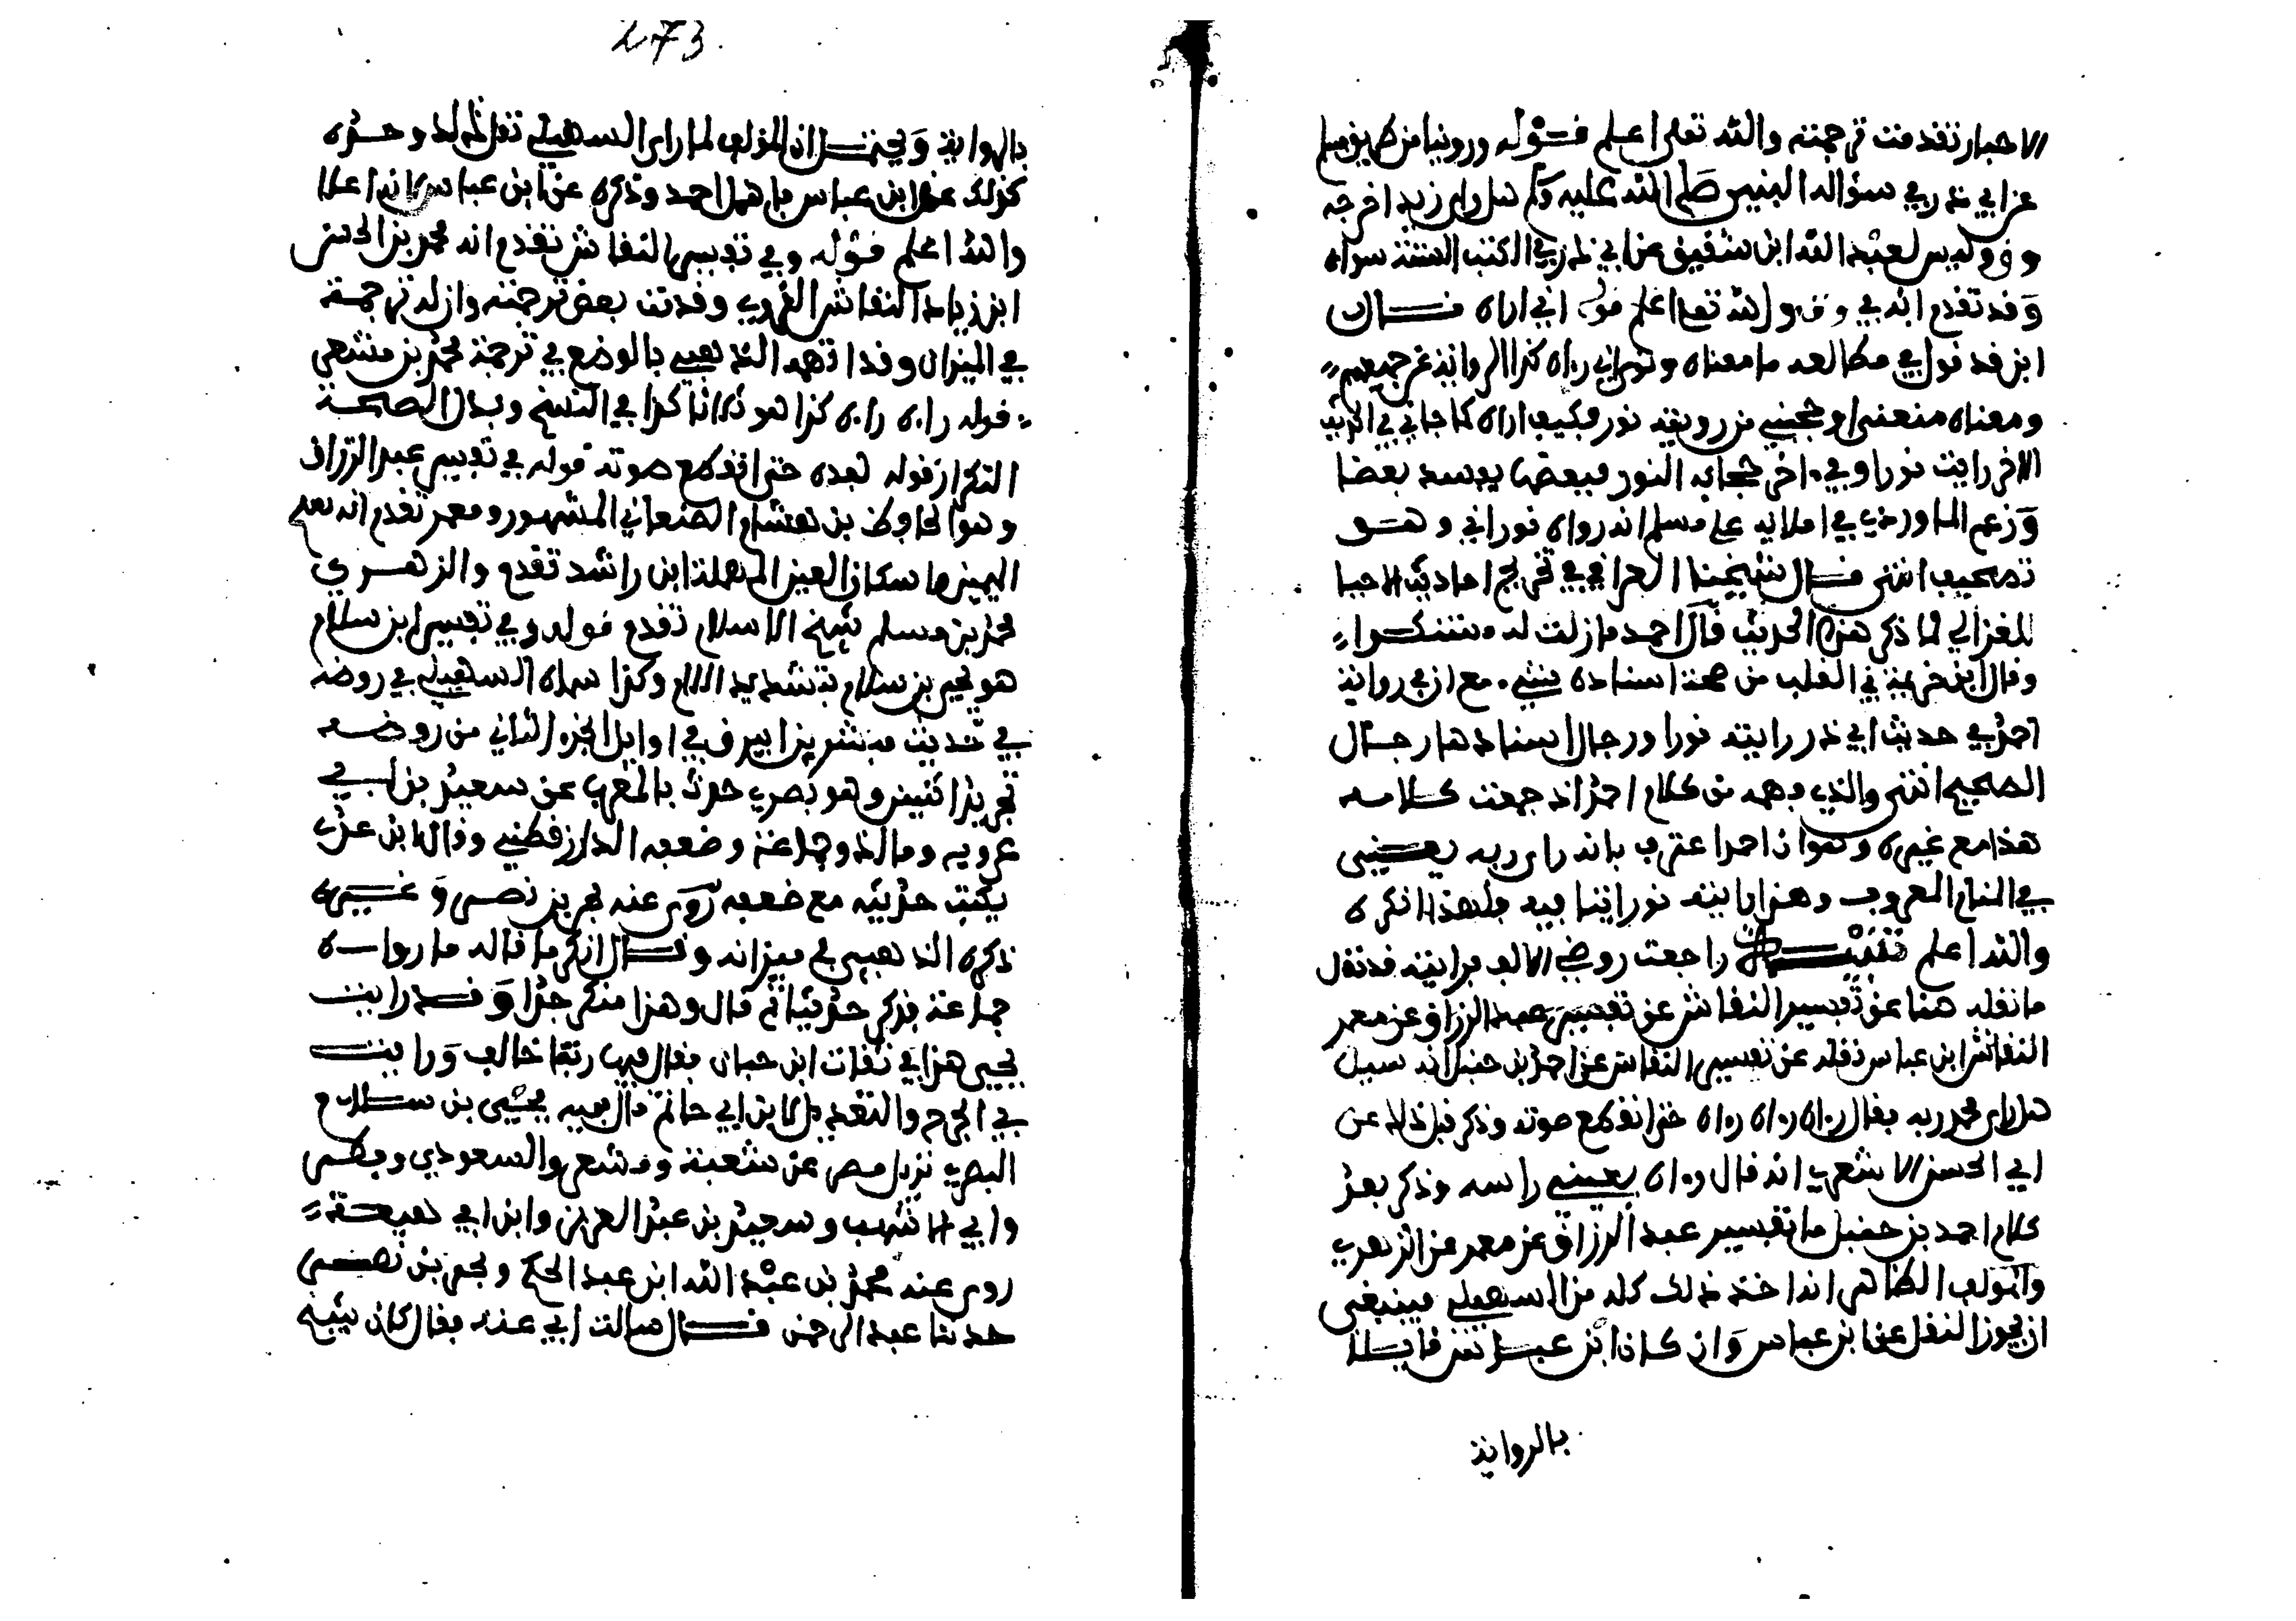 الاحبار تقدمت ترجمته والله تعلى اعلم قوله وروينا من طريق مسلم
عن ابي ذر في سؤاله النبي صلى الله عليه وسلم هل راى ربه اخرجه
وليس لعبد الله ابن شقيق عن ابي ذر في الكتب الستة سواه
وقد تقدم انه في والله تعلى اعلم قوله اني اراه قال
ابن قرقول في مطالعه ما معناه نور اني راه كذا الرواية عن جميعهم
ومعناه منعني وحجبني من رويته نور فكيف اراه كما جا في الحديث
الاخر رايت نورا وفي اخر حجابه النور فبعضها يفسر بعضا
وزعم الماوردي في املايه على مسلم انه رواه نوراني وهو
تصحيف انتهى قال شيخنا العراقي في تخريج احاديث الاحيا
للغزالي لما ذكر هذا الحديث قال احمد ما زلت له منكرا
وقال ابن خزيمة في القلب من صحة اسناده شيء مع ان في رواية
احمد في حديث ابي ذر رايته نورا ورجال اسنادها رجال
الصحيح انتهى والذي فهمه من كلام احمد انه جمعت كلامه
هذا مع غيره وهو ان احمد اعترف بانه راى ربه يعني
في المنام المعروف وهذا رايته نور اينا فيه فلهذا انكره
والله اعلم تنبيه راجعت روض الالف فرايته قد نقل
ما نقله هنا عن تفسير النقاش عن تفسير عبد الرزاق عن معمر
النقاش ابن عباس نقله عن تفسير النقاش عن احمد بن حنبل انه سيل
هل راى محمد ربه فقال راه راه راه حتى انقطع صوته وذكر قبل ذلك عن
ابي الحسن الاشعري انه قال راه بعيني راسه وذكر بعد
كلام احمد بن حنبل ما تفسير عبد الرزاق عن معمر عن الزهري
والمولف الظاهر انه اخذ ذلك كله من السهيلي فينبغي
ان يجوز النقل عن ابن عباس وان كان ابن عباس قايلا
بالرواية
273
بالرواية ويحتمل ان المولف لما راى السهيلي نقل ذلك وحده
كذلك عن ابن عباس فاهمل احمد وذكره عن ابن عباس لانه اعلا
والله اعلم قوله وفي تفسير النقاش تقدم انه محمد بن الحسن
ابن زياد النقاش المقري وقدمت بعض ترجمته وان له ترجمة
في الميزان وقد اتهمه الذهبي بالوضع في ترجمة محمد بن مسعر
قوله راه راه كذا هو ذكر انا كذا في النسخ ويدل لصحة
التكرار قوله بعده حتى انقطع صوته قوله في تفسير عبد الرزاق
وهو الحافظ بن همام الصنعاني المشهور ومعمر تقدم انه بفتح
الميمين واسكان العين المهملة ابن راشد تقدم والزهري
محمد بن مسلم شيخ الاسلام تقدم قوله وفي تفسير ابن سلام
هو يحيى بن سلام بتشديد اللام وكذا سماه السهيلي في روضه
في حديث مبشر بن ابيرق في اوايل الجزء الثاني من روضه
تجزية اثنين وهو بصري حدث بالمغرب عن سعيد بن ابي
عروبه ومالك وجماعة وضعفه الدارقطني وقال ابن عدي
يكتب حديثه مع ضعفه روى عنه بحر بن نصر وغيره
ذكره الذهبي في ميزانه وقال انكر ما قاله ما رواه
جماعة فذكر حديثا ثم قال وهذا منكر جدا وقد رايت
يحيى هذا في ثقات ابن حبان فقال فيها ربما خالف ورايت
في الجرح والتعديل لابن ابي حاتم قال فيه يحيى بن سلام
البصري نزيل مصر عن شعبة ومسعر والمسعودي وفطر
وابي الاشهب وسعيد بن عبد العزيز وابن ابي لهيعة
روى عنه محمد بن عبد الله ابن عبد الحكم وبحر بن نصر
حدثنا عبد الرحمن قال سالت ابي عنه فقال كان شيخ